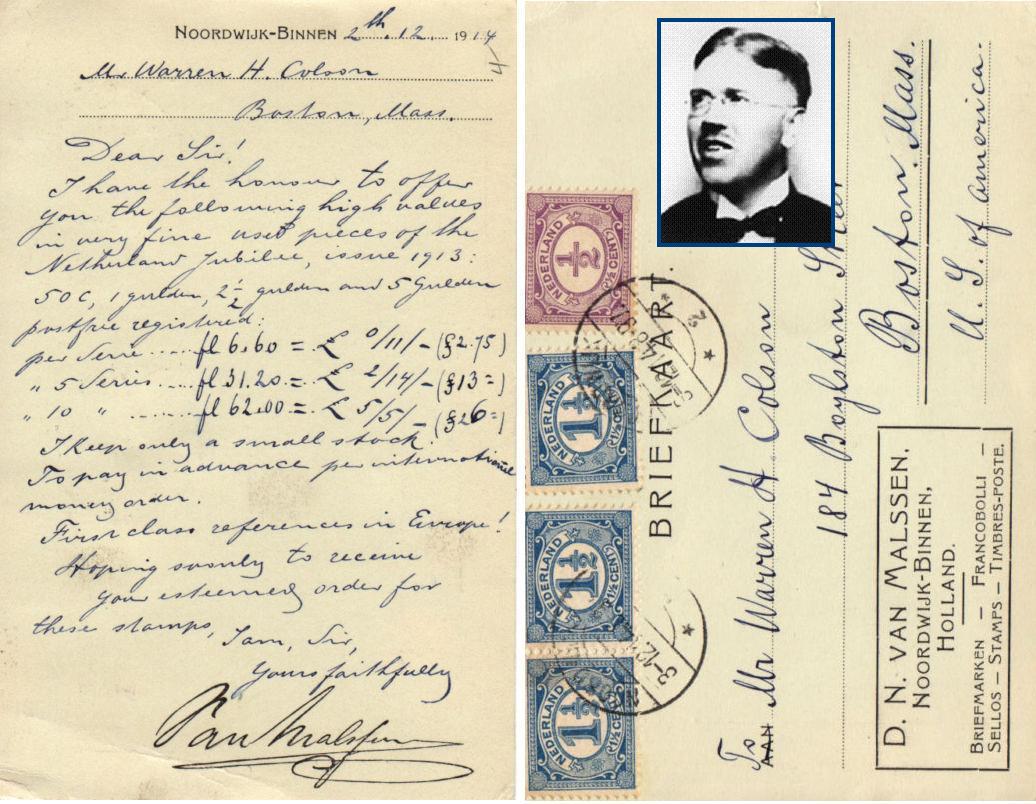 NOORDWIJK-BINNEN 2th.12. 1914
4
Mr Warren H. Colson
Boston, Mass.
Dear Sir!
I have the honour to offer
you the following high values
in very fine used pieces of the
Netherland Jubilee, issue 1913:
50 C, 1 gulden, 2½ gulden and 5 Gulden
postfree registered:
per Serie ..... fl 6.60 = £ 0/11/- ($2.75)
" 5 Series .... fl 31.20 = £ 2/14/- ($13=)
" 10 " ........ fl 62.00 = £ 5/5/- ($26=)
I keep only a small stock.
To pay in advance per international
money order.
First class references in Europe!
Hoping soonly to receive
your esteemed order for
these stamps,
I am, Sir,
Yours faithfully
Van Malssen
NEDERLAND
½
1½
BRIEFKAART.
To
AAN Mr Warren H Colson
184 Boylston Street
Boston. Mass.
U. S. of America.
D. N. VAN MALSSEN.
NOORDWIJK-BINNEN,
HOLLAND.
BRIEFMARKEN — FRANCOBOLLI —
SELLOS — STAMPS — TIMBRES-POSTE.